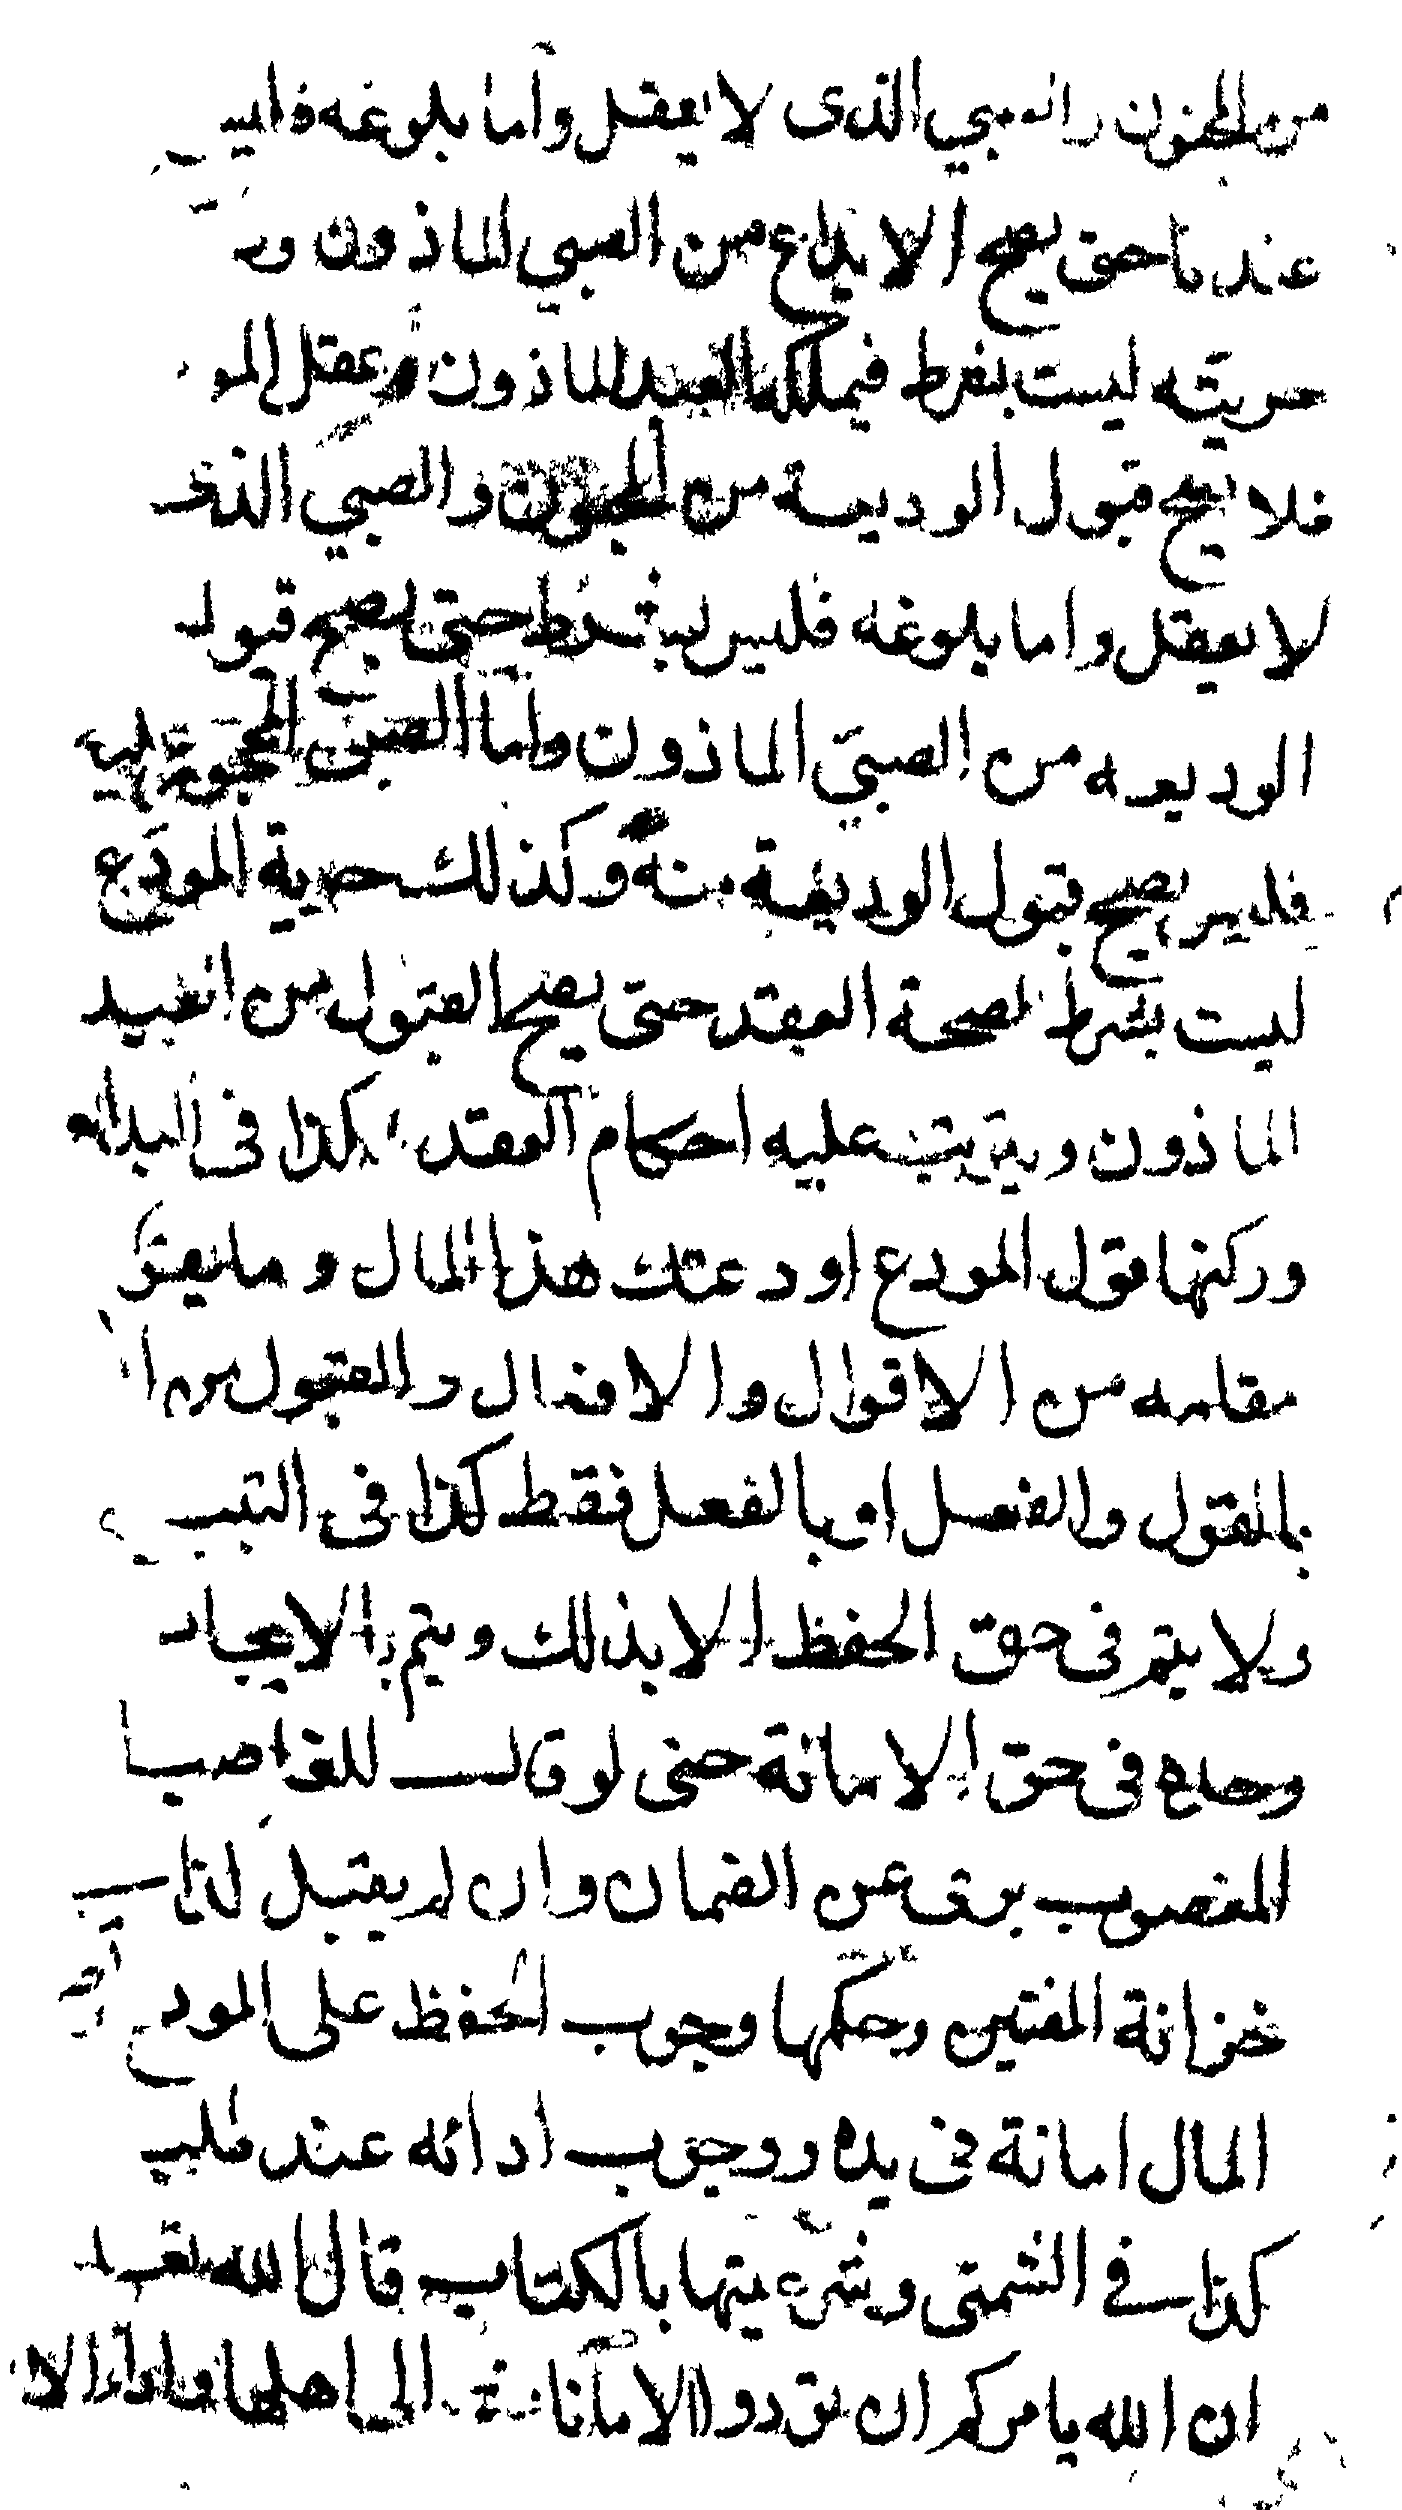 من المجنون والصبي الذى لا يعقل واما بلوغه فليس
عندنا حتى يصح الايداع من الصبي الماذون و
حريته ليست بشرط فيملكه العبد الماذون وعقل المو
فلا يصح قبول الوديعة من المجنون والصبي الذى
لا يعقل واما بلوغه فليس بشرط حتى يصح قبول
الوديعه من الصبي الماذون واما الصبي المحجور عليه
فليس يصح قبول الوديعة منه وكذلك حرية المودع
ليست بشرط لصحة العقد حتى يصح القبول من العبد
الماذون ويترتب عليه احكام العقد كذا فى البدائع
وركنها قول المودع اودعتك هذا المال وما يقو
مقامه من الاقوال والافعال والقبول من ا
بالقول والفعل او بالفعل فقط كذا فى التبيين
ولا يتم فى حق الحفظ الا بذلك ويتم بالايجاب
وحده فى حق الامانة حتى لو قال للغاصب
المغصوب برئ عن الضمان وان لم يقبل كذا
خزانة المفتين وحكمها وجوب الحفظ على المودع
المال امانة فى يده ووجوب ادائه عند طلب
كذا فى الشمنى وشرعيتها بالكتاب قال الله تعـ
ان الله يامركم ان تؤدوا الامانات الى اهلها واداء الا